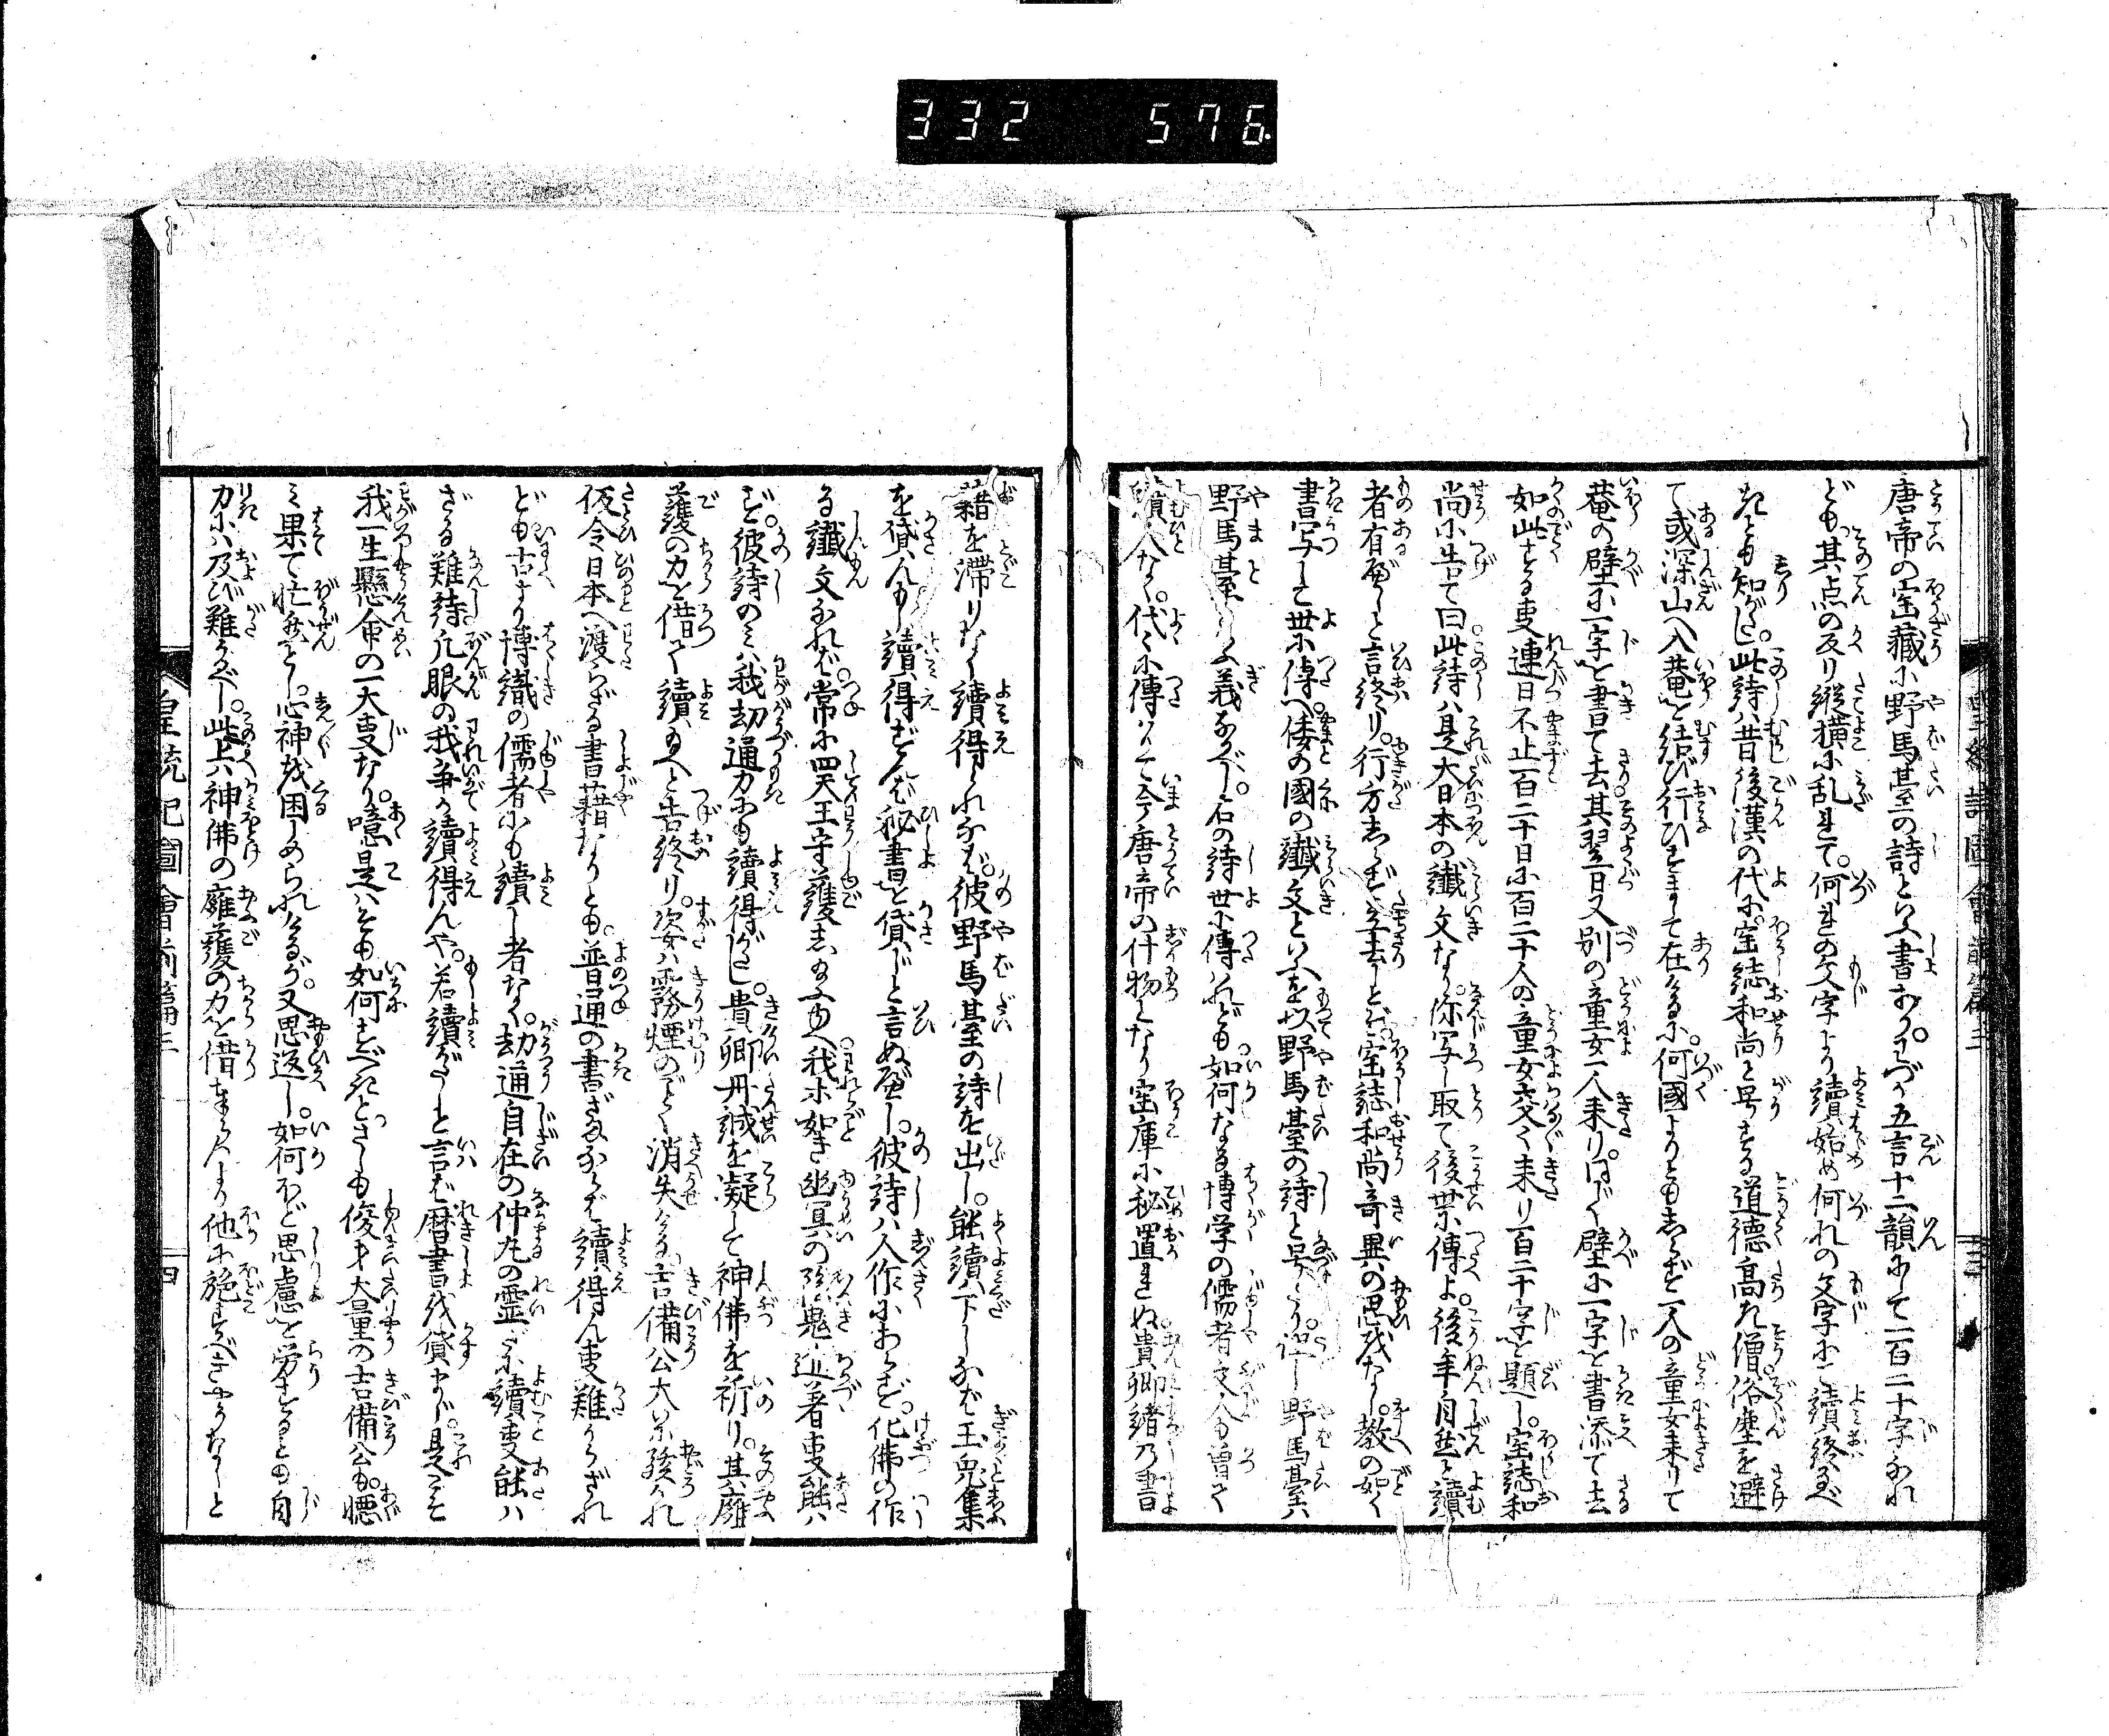 332 576
唐帝の宝蔵に野馬臺の詩といふ書あり。わづか五言十二韻にして一百二十字なれ
ども其点の反り縦横に乱れて。何れの文字より讀始め何れの文字にて讀終るべ
きとも知がたし。此詩ハ昔後漢の代に。宝誌和尚と号する道徳高き僧俗塵を避
て或深山へ入菴を結び行ひすまして在けるに。何國よりともしらず一人の童女来りて
菴の壁に一字を書て去其翌日又別の童女一人来り。同じく壁に一字を書添て去
如此する事連日不止一百二十日に百二十人の童女交く来り一百二十字を題し。宝誌和
尚に告て曰此詩ハ是大日本の讖文なり。你写し取て後世に傳よ。後年自然と讀
者有べしと言終り。行方しらず立去しとぞ。宝誌和尚奇異の思をなし。教の如く
書写して世に傳へ倭の國の讖文といふを以野馬臺の詩と号たり。謹し野馬臺ハ
野馬臺といふ義なるべし。右の詩世に傳はれども如何なる博学の儒者文人も曽て
讀人なく。代々に傳りて今唐帝の什物となり宝庫に秘置れぬ貴卿緒の書
籍を滞りなく讀得られなバ。彼野馬臺の詩を出し。能讀下しなバ玉兎集
を貸んも讀得ずんバ秘書を貸じと言ぬべし。彼詩ハ人作にあらず。化佛の作
る讖文なれバ。常に四天王守護し玉ふゆへ我ホ如き幽冥の強鬼ハ近着事能ハ
ず。彼詩のミハ我劫通力にも讀得がたし。貴卿丹誠を凝して神佛を祈り。其擁
護の力を借て讀玉へと告終り。姿ハ霧煙のごとく消失ける吉備公大に駭かれ
仮令日本へ渡らざる書籍なりとも。普通の書ざまならバ讀得ん事難からざれ
ども古より博識の儒者にも讀し者なく。劫通自在の仲丸の霊だに讀事能ハ
ざる難詩凡眼の我争か讀得んや。若讀がたしと言バ暦書を貸まじ。是こそ
我一生懸命の一大事なり。噫是ハそも如何すべきと。さしも俊才大量の吉備公も。聴
ミ果て忙然とし。心神を困しめられけるが。又思返し。如何ほど思慮を労するとも自
力にハ及び難かるべし。此上ハ神佛の擁護の力を借奉るより他に施すべきやうなしと
皇統紀圖會前篇三
四